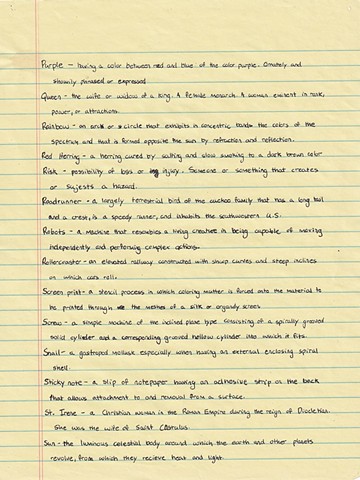 Purple - having a color between red and blue of the color purple. Ornately and
showily phrased or expressed
Queen - the wife or widow of a king. A female monarch. A woman eminent in rank,
power, or attractions.
Rainbow - an arc or circle that exhibits in concentric bands the colors of the
spectrum and that is formed opposite the sun by refraction and reflection.
Red Herring - a herring cured by salting and slow smoking to a dark brown color
Risk - possibility of loss or injury. Someone or something that creates
or sujests a hazard.
Roadrunner - a largely terrestrial bird of the cuckoo family that has a long tail
and a crest, is a speedy runner, and inhabits the southwestern U.S.
Robots - a machine that resembles a living creature in being capable of moving
independently and performing complex actions.
Rollercoaster - an elevated railway constructed with sharp curves and steep inclines
on which cars roll.
Screen print - a stencil process in which coloring matter is forced onto the material to
be printed through the meshes of a silk or organdy screen
Screw - a simple machine of the inclined plane type consisting of a spirally grooved
solid cylinder and a corresponding grooved hollow cylinder into which it fits.
Snail - a gastropod mollusk especially when having an external enclosing spiral
shell.
Sticky note - a slip of notepaper having an adhesive strip on the back
that allows attachment to and removal from a surface.
St. Irene - a Christian woman in the Roman Empire during the reign of Diocletian.
She was the wife of Saint Castulus
Sun - the luminous celestial body around which the earth and other planets
revolve, from which they recieve heat and light.